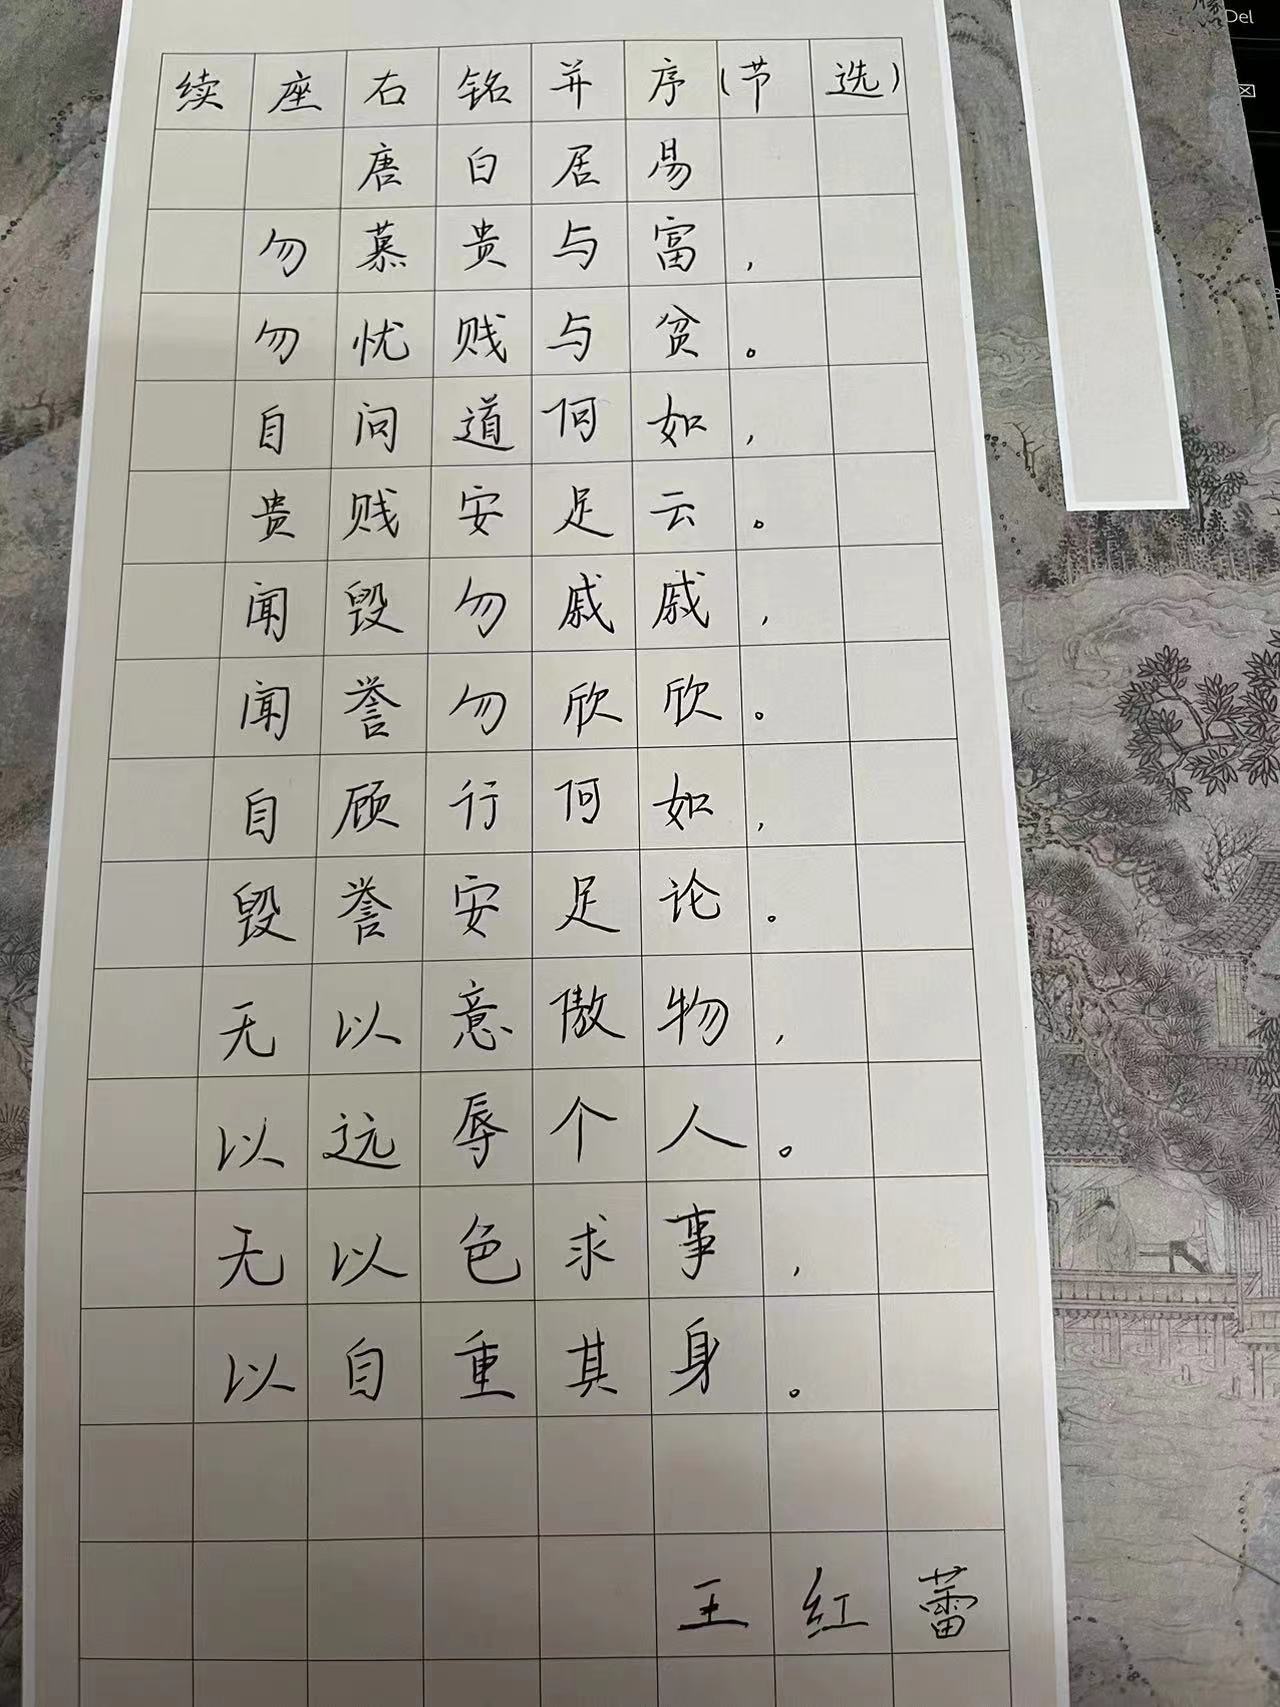 续座右铭并序(节选)
唐白居易
勿慕贵与富，
勿忧贱与贫。
自问道何如，
贵贱安足云。
闻毁勿戚戚，
闻誉勿欣欣。
自顾行何如，
毁誉安足论。
无以意傲物，
以远辱个人。
无以色求事，
以自重其身。
王红蕾
Del